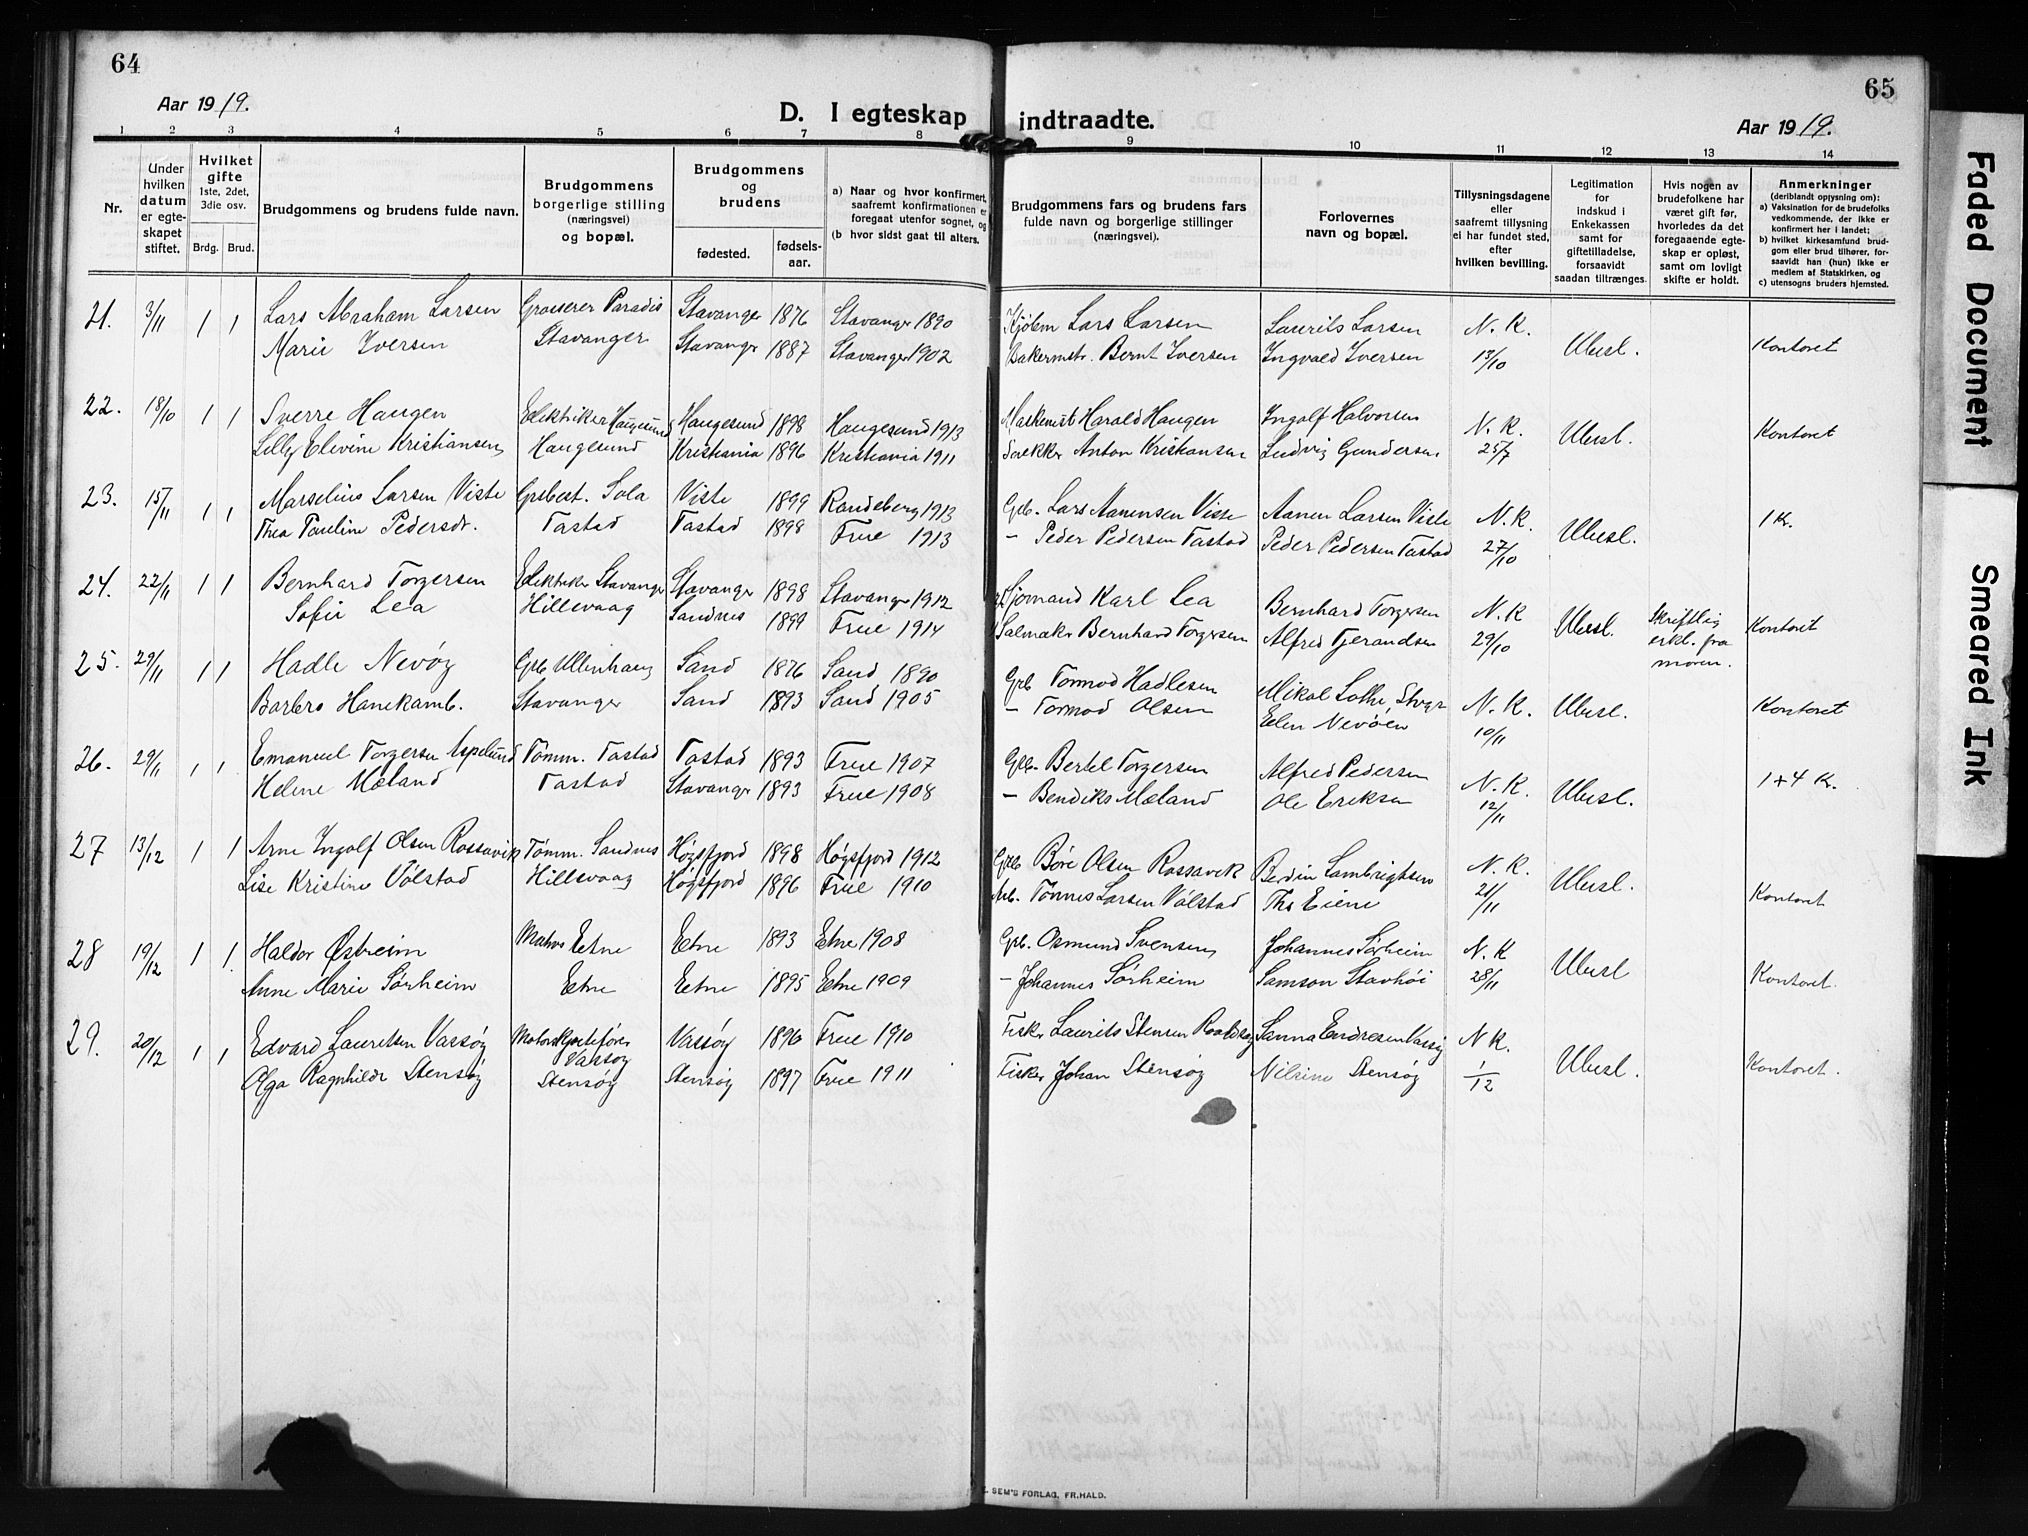 64
65
Aar 1919.
D. I egteskap indtraadte.
Aar 1919.
1 2 3 4 5 6 7 8 9 10 11 12 13 14
Nr.
Under hvilken datum er egteskapet stiftet.
Hvilket gifte
1ste, 2det, 3die osv.
Brdg. Brud.
Brudgommens og brudens fulde navn.
Brudgommens borgerlige stilling (næringsvei) og bopæl.
Brudgommens og brudens
fødested.
fødselsaar.
a) Naar og hvor konfirmert, saafremt konfirmationen er foregaat utenfor sognet, og
(b hvor sidst gaat til alters.
Brudgommens fars og brudens fars fulde navn og borgerlige stillinger (næringsvei).
Forlovernes navn og bopæl.
Tillysningsdagene eller saafremt tillysning ei har fundet sted, efter hvilken bevilling.
Legitimation for indskud i Enkekassen samt for giftetilladelse, forsaavidt saadan tiltrænges.
Hvis nogen av brudefolkene har været gift før, hvorledes da det foregaaende egteskap er opløst, samt om lovligt skifte er holdt.
Anmerkninger
(deriblandt oplysning om):
a) Vaksination for de brudefolks vedkommende, der ikke er konfirmert her i landet;
b) hvilket kirkesamfund brudgom eller brud tilhører, forsaavidt han (hun) ikke er medlem af Statskirken, og
c) utensogns bruders hjemsted.
21. 3/11 1 1 Lars Abraham Larsen Grosserer Paradis Stavanger 1876 Stavanger 1890 Kjøbm Lars Larsen Laurits Larsen N. K. Ubesl. Kontoret
Marie Iversen Stavanger Stavanger 1887 Stavanger 1902 Bakermstr. Bernt Iversen Ingvald Iversen 13/10
22. 18/10 1 1 Sverre Haugen Elektriker Haugesund Haugesund 1898 Haugesund 1913 Maskinist Harald Haugen Ingolf Halvorsen N. K. Ubesl. Kontoret
Lilly Elevine Kristiansen Haugesund Kristiania 1896 Kristiania 1911 Anton Kristiansen Ludvig Gundersen 25/7
23. 15/11 1 1 Marselius Larsen Viste Grbest. Sola Viste 1899 Randeberg 1913 Grb. Lars Aanensen Viste Aanen Larsen Viste N. K. Ubesl. 1 Kr.
Thea Pauline Pedersdr. Tastad Tastad 1898 Frue 1913 – Peder Pedersen Tastad Peder Pedersen Tastad 27/10
24. 22/11 1 1 Bernhard Torgersen Elektriker Stavanger Stavanger 1898 Stavanger 1912 Sjømand Karl Lea Bernhard Torgersen N. K Ubesl. Skriftlig erkl. fra moren. Kontoret
Sofie Lea Hillevaag Sandnes 1899 Frue 1914 Salmaker Bernhard Torgersen Alfred Tjerandsen 29/10
25. 29/11 1 1 Hadle Nevøy Grb Ullenhaug Sand 1876 Sand 1890 Grb Tormod Hadlesen Mikal Lothe, Stvgr N. K. Ubesl. Kontoret
Barbro Hanekamb. Stavanger Sand 1893 Sand 1905 – Tormod Olsen Elen Nevøen 10/11
26. 29/11 1 1 Emanuel Torgersen Aspelund Tømm. Tastad Tastad 1893 Frue 1907 Grb. Bertel Torgersen Alfred Pedersen N. K. Ubesl. 1+4 Kr.
Helene Mæland Tastad Stavanger 1893 Frue 1908 – Bendiks Mæland Ole Eriksen 12/11
27 13/12 1 1 Arne Ingolf Olsen Rossavik Tømm. Sandnes Høgsfjord 1898 Høgsfjord 1912 Grb. Børe Olsen Rossavik Berdin Lambrigtsen N. K. Ubesl. Kontoret
Lise Kristine Vølstad Hillevaag Høgsfjord 1896 Frue 1910 Arb. Tønnes Larsen Vølstad Ths Eiene 21/11
28 19/12 1 1. Haldor Østreim Matros Etne Etne 1893 Etne 1908 Grb. Osmund Svensen Johannes Sørheim N. K Ubesl Kontoret.
Anne Marie Sørheim Etne Etne 1895 Etne 1909 – Johannes Sørheim Samson Stavhøi 28/11
29. 20/12 1 1 Edvard Lauritsen Vassøy Vassøy Vassøy 1896 Frue 1910 Fisker Laurits Stensen Sanna Endresen Vassøy N K. Ubesl. Kontoret.
Olga Ragnhilde Stensøy Stensøy Stensøy 1897 Frue 1911 Fisker Johan Stensøy Nilsine Stensøy 1/12
SEM'S FORLAG, FR.HALD.
Faded Document
Smeared Ink